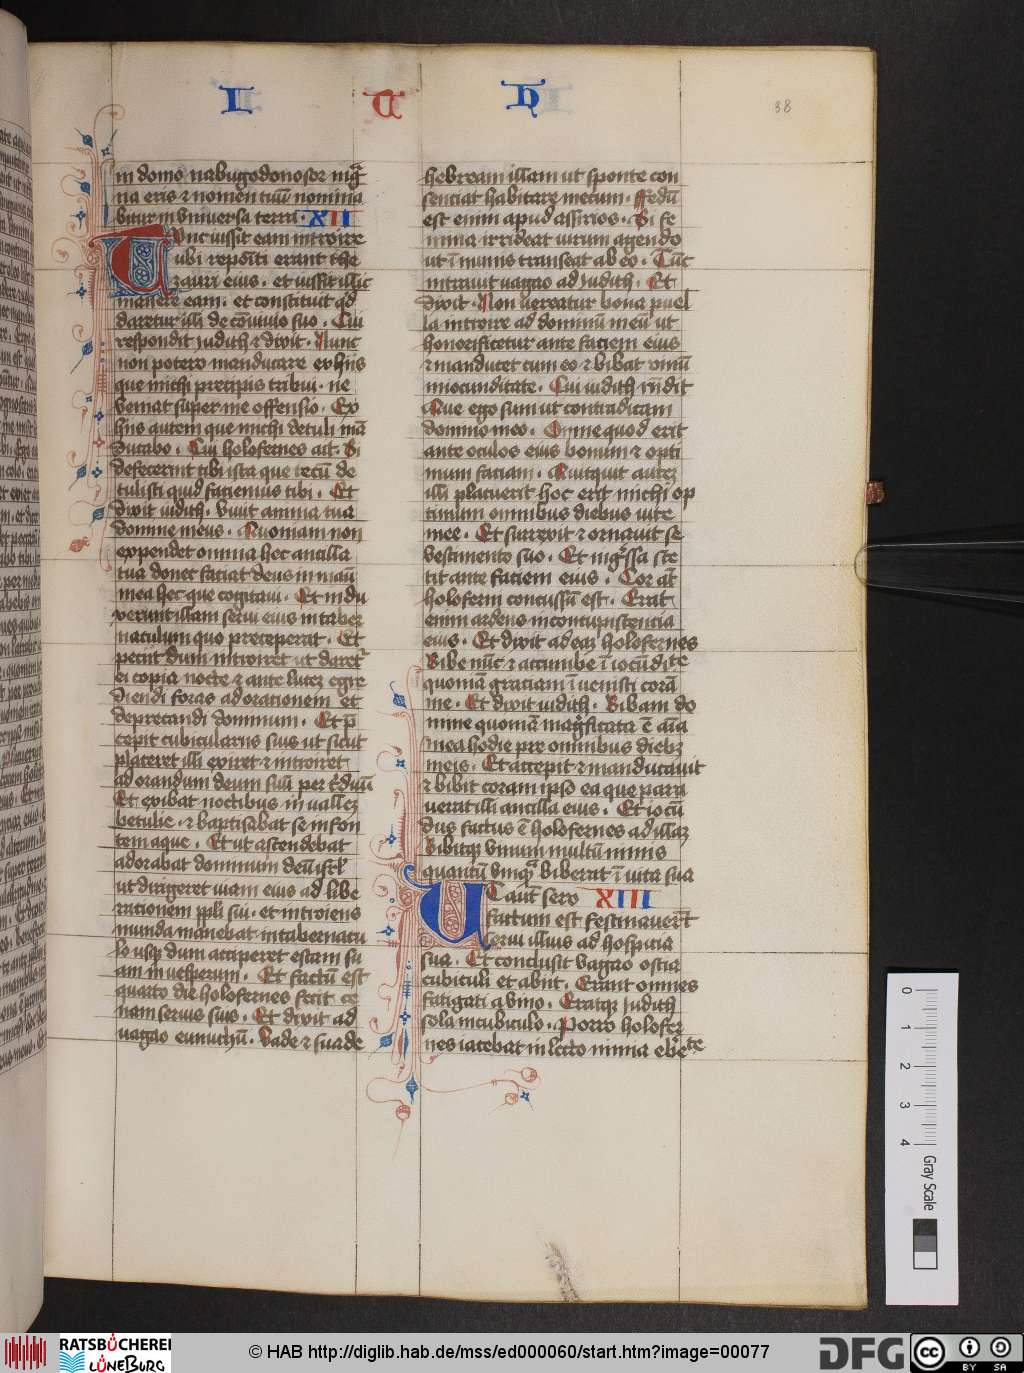 I T H
38
in domo nabugodonosor mag
na eris et nomen tuū nomina
bitur in vniuersa terra. XII
Tunc iussit eam introire
ubi repositi erant the
zauri eius. et iussit illic
manere eam. et constituit qd
daretur illi de cōuiuio suo. Cui
respondit iudith et dixit. Nunc
non potero manducare ex hiis
que michi precipis tribui. ne
veniat super me offensio. Ex
hiis autem que michi detuli mā
ducabo. Cui holofernes ait. Si
defecerint tibi ista que tecū de
tulisti quid faciemus tibi. Et
dixit iudith. viuit anima tua
domine meus. Quoniam non
expendet omnia hec ancilla
tua donec faciat deus in manū
mea hec que cogitaui. Et indu
xerunt illam serui eius in taber
naculum quo preceperat. Et
peciit dum introiret ut daret̄
ei copia nocte et ante lucez egre
diendi foras ad orationem et
deprecandi dominum. Et p̄
cepit cubiculariis suis ut sicut
placeret illi exiret et introiret
ad orandum deum suū per t̄duū
Et exibat noctibus in vallez
betulie. et baptisabat se in fon
tem aque. Et ut ascendebat
adorabat dominum deū isrl̄
ut dirigeret uiam eius ad libe
rationem ppli sui. et introiens
munda manebat in tabernacu
lo usq; dum acciperet escam su
am in uesperum. Et factū est
quarto die holofernes fecit ce
nam seruis suis. Et dixit ad
uagao eunuchū. Vade et suade
hebream illam ut sponte con
senciat habitare mecum. ffedū
est enim apud assirios. Si fe
mina irrideat uirum agendo
ut īmunis transeat ab eo. Tūc
intrauit uagao ad Judith. Et
dixit. Non uereatur bona puel
la introire ad dominū meū ut
honorificetur ante faciem eius
et manducet cum eo et bibat uinū
in iocunditate. Cui iudith rn̄dit
Que ego sum ut contradicam
domino meo. Omne quod erit
ante oculos eius bonum et opti
mum faciam. Quitquit autez
illi placuerit hoc erit michi op
timum omnibus diebus uite
mee. Et surrexit et ornauit se
vestimento suo. Et ingr̄ssa ste
tit ante faciem eius. Cor aūt
holoferni concussū est. Erat
enim ardens in concupiscencia
eius. Et dixit ad eaz holofernes
Bibe nūc et accumbe ī iocūdite
quoniā graciam īuenisti corā
me. Et dixit iudith. Bibam do
mine quoniā magnificata ē aīa
mea hodie pre omnibus dieb;
meis. Et accepit et manducauit
et bibit coram ipso ea que para
uerat illi ancilla eius. Et iocū
dus factus ē holofernes ad illaz
Bibitq; vinum multū nimis
quantū vnq̄ biberat ī uita sua
Ut aut̄ sero XIII
factum est festinauer̄t
serui illius ad hospicia
sua. Et conclusit vagao ostia
cubiculi et abiit. Erant omnes
fatigati a vino. Eratq; Judith
sola in cubiculo. Porro holofer
nes iacebat in lecto nimia ebⁱete
0
1
2
3
4
Gray Scale
RATSBÜCHEREI
LÜNEBURG
© HAB http://diglib.hab.de/mss/ed000060/start.htm?image=00077
DFG
cc
BY SA